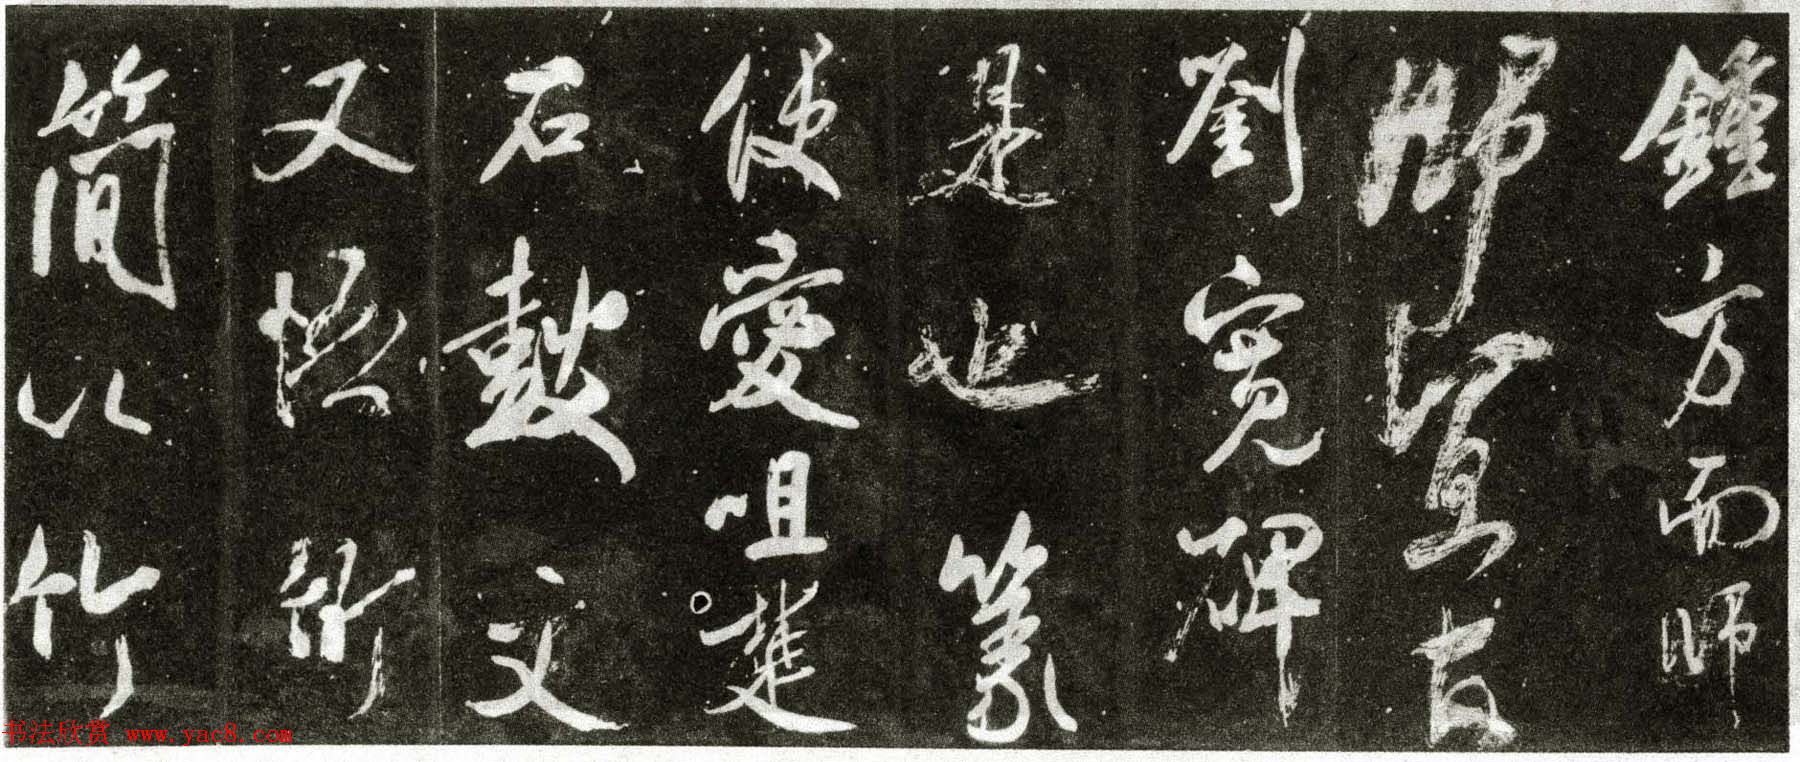 鍾方而師
師宜官
劉寬碑
是也篆
便愛咀楚
石鼓文
又悟竹
簡以竹
书法欣赏 www.yac8.com